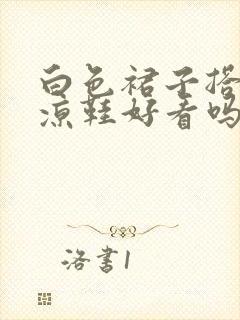 白色裙子搭
凉鞋好看吗
洛書1